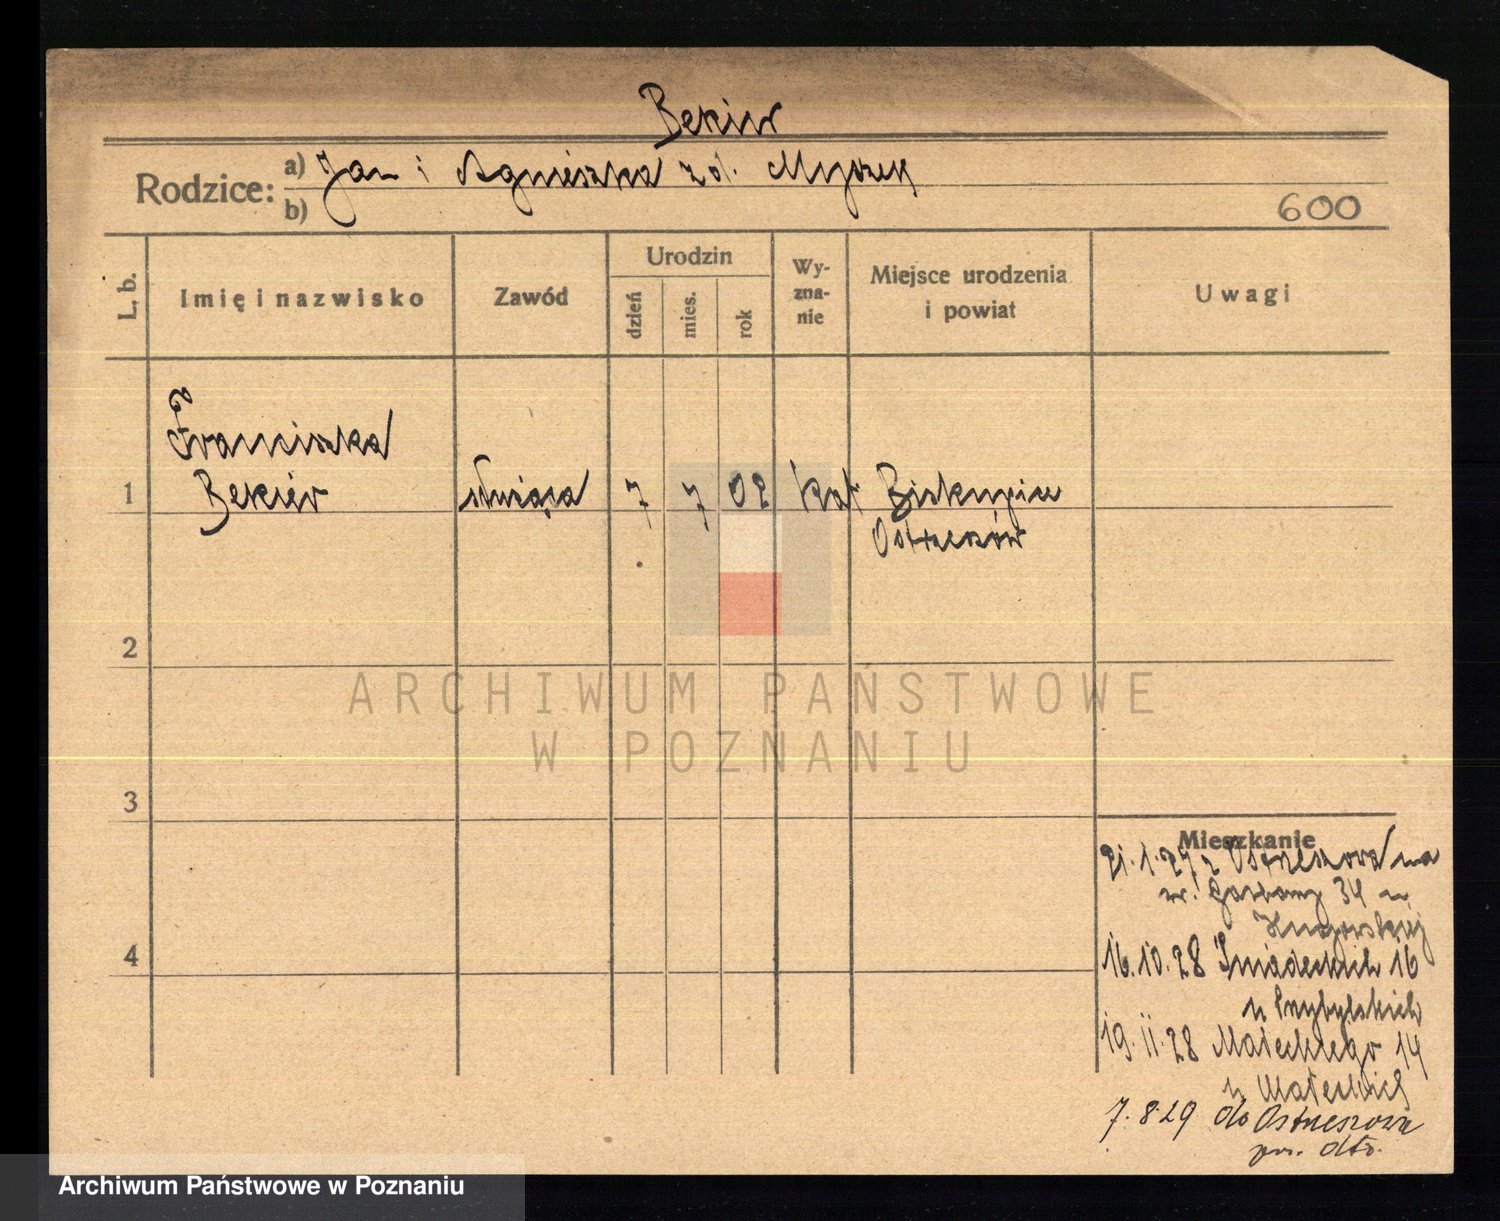 Bekier
Rodzice: a) Jan i Agnieszka z d. Myszek
b)
600
L. b.
Imię i nazwisko
Zawód
Urodzin
dzień
mies.
rok
Wy-
zna-
nie
Miejsce urodzenia
i powiat
Uwagi
Franciszka
1 Bekier służąca 7 7 02 kat Biskupice
Ostrzeszów
2
ARCHIWUM PAŃSTWOWE
W POZNANIU
3
Mieszkanie
21.1.27 z Ostrzeszowa na
Garbary 34 u
4
16.10.28 Śniadeckich 16
u Przybylskich
19.11.28 Małeckiego 14
u Małeckich
7.8.29 do Ostrzeszowa
pow. dto.
Archiwum Państwowe w Poznaniu